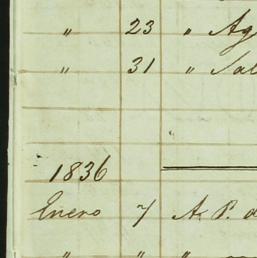 " 23 " Ag
" 31 " Sal
1836
Enero 7 A P. d
" "